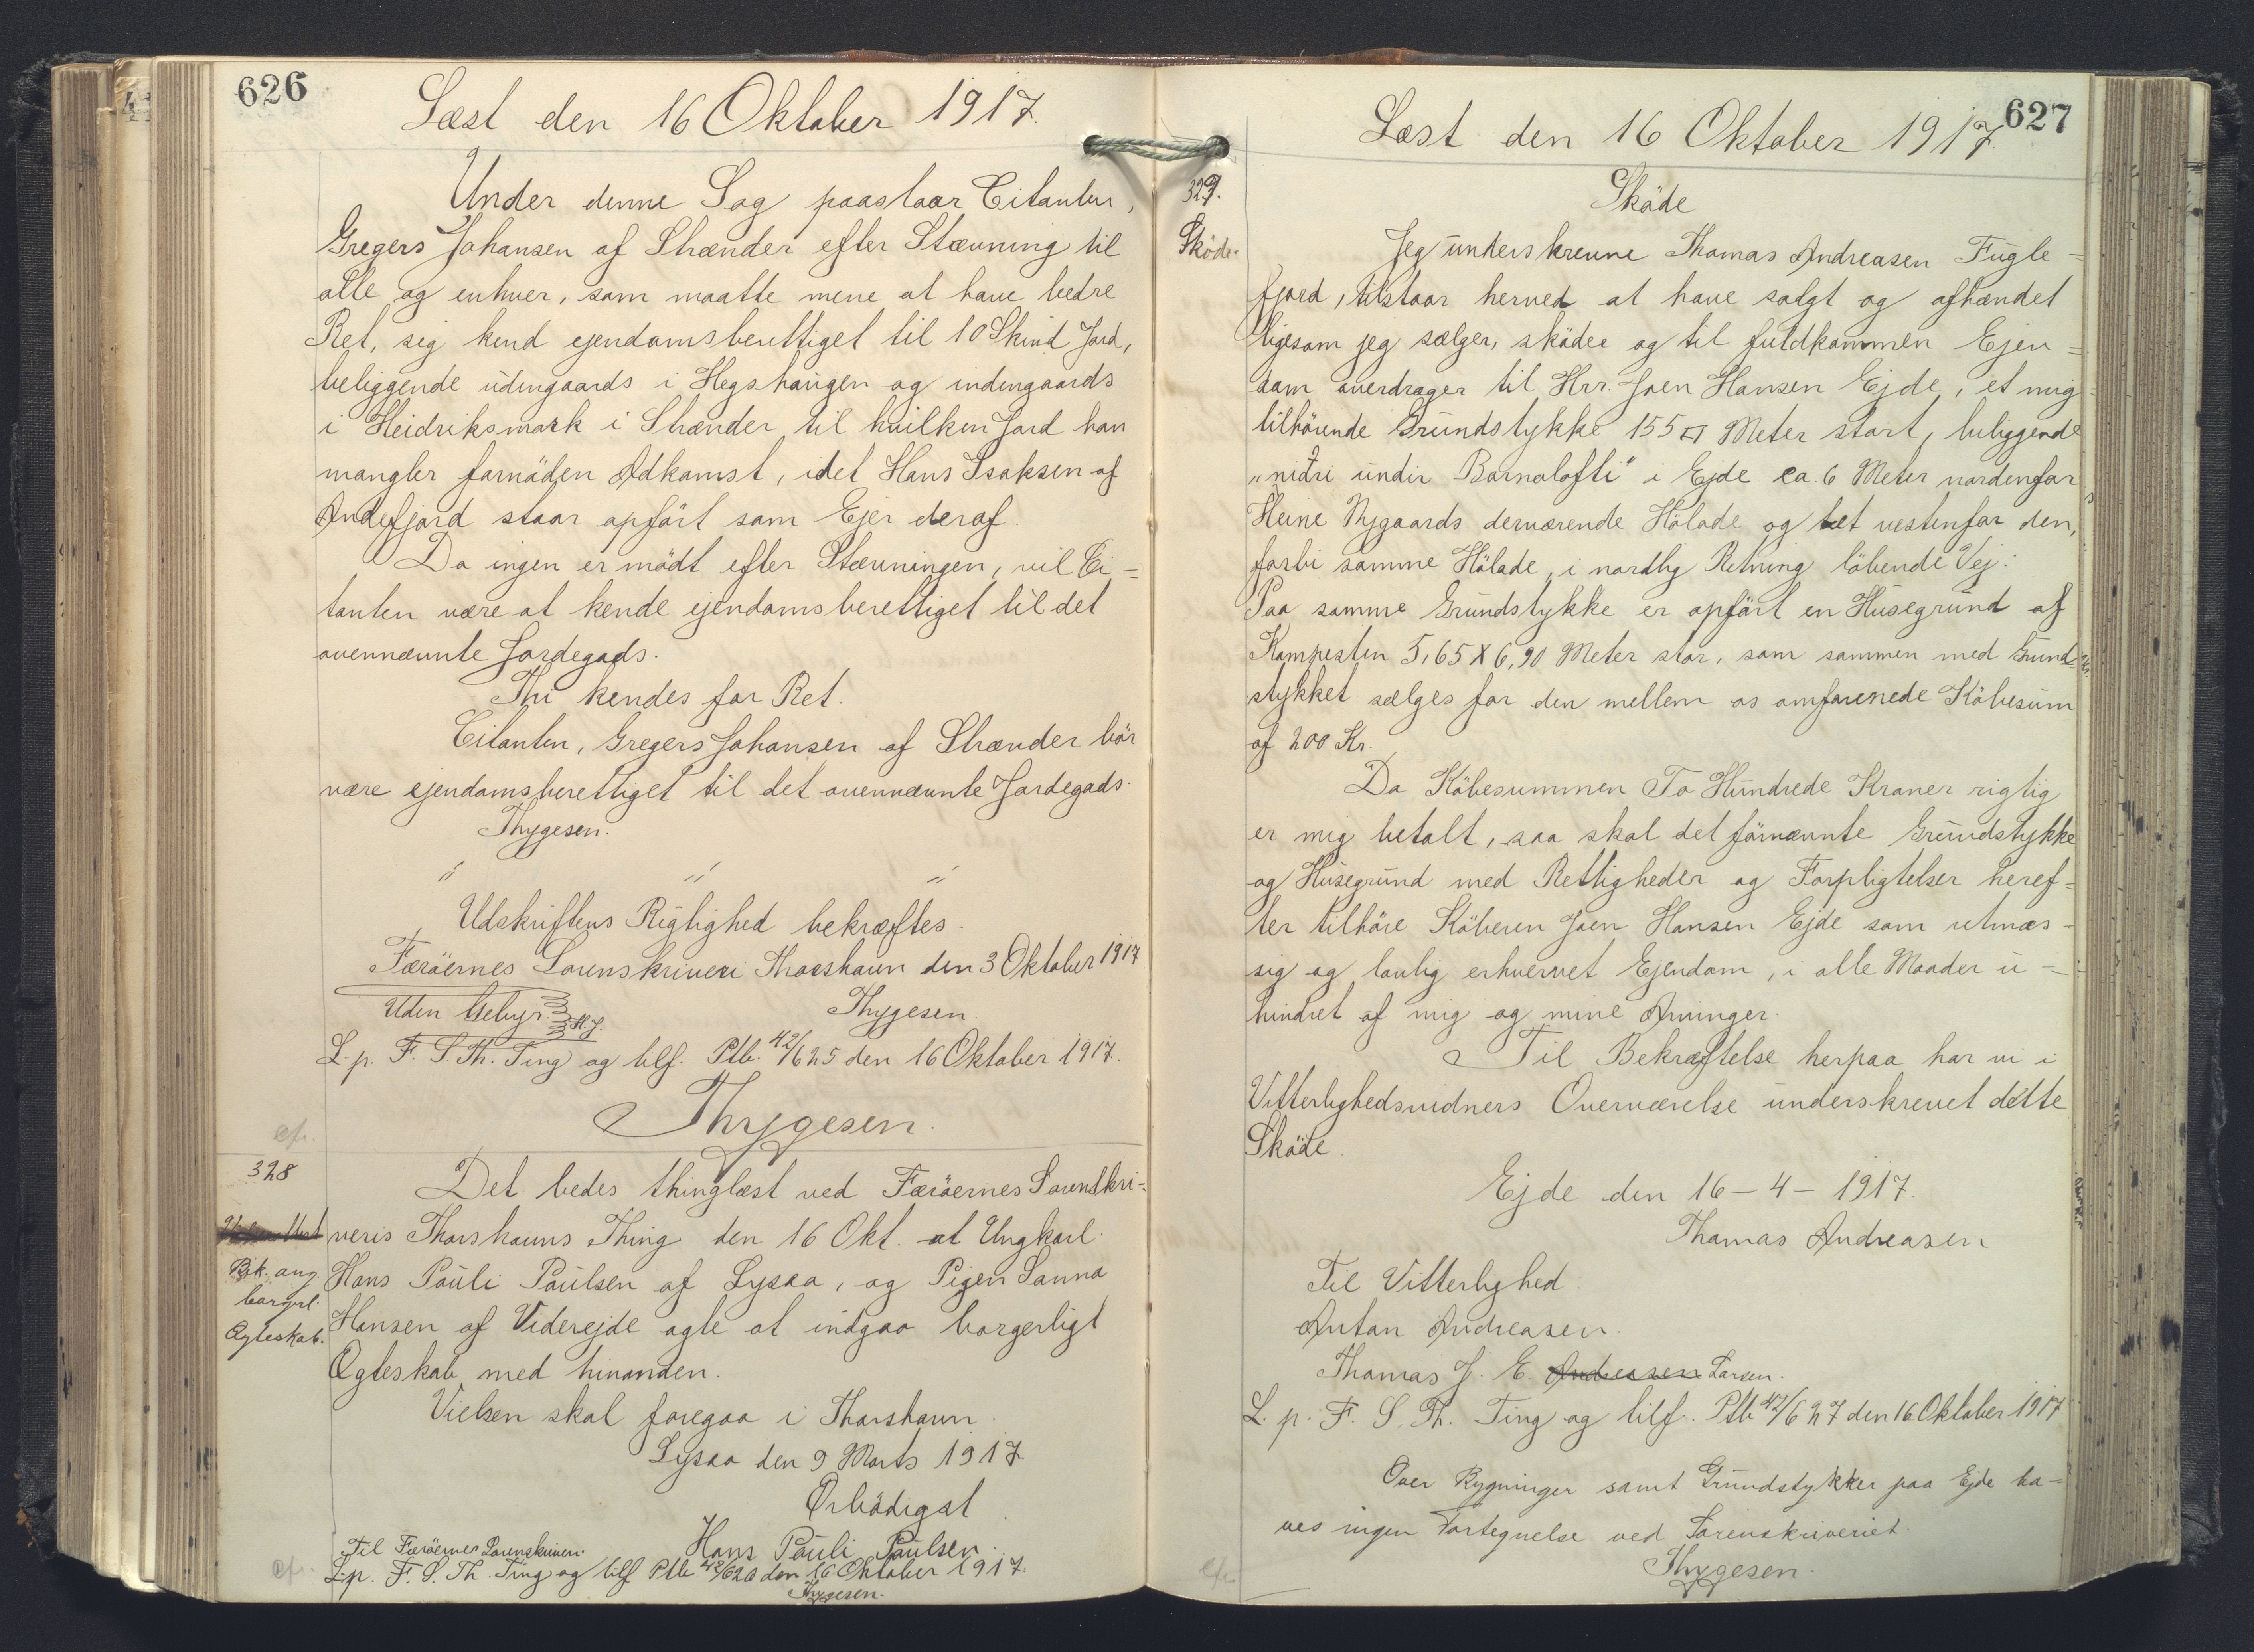 626
Læst den 16 Oktober 1917.
Under denne Sag paastaar Citanten,
Gregers Johansen af Strænder efter Stævning til
alle og enhver, som maatte mene at have bedre
Ret, sig kend ejendomsberettiget til 10 Skind Jord,
beliggende udengaards i Hegshaugen og indengaards
i Heidriksmark i Strænder til hvilken Jord han
mangler fornöden Adkomst, idet Hans Isaksen af
Andefjord staar opfört som Ejer deraf.
Da ingen er mödt efter Stævningen, vil Ci=
tanten være at kende ejendomsberettiget til det
ovennævnte Jordegods.
Thi kendes for Ret.
Citanten, Gregers Johansen af Strænder bör
være ejendomsberettiget til det ovennævnte Jordegods.
Thygesen.
" " "
Udskriftens Rigtighed bekræftes.
Færöernes Sorenskriveri Thorshavn den 3 Oktober 1917
Uden Gebyr. Thygesen.
H.J.
L. p. F. S. Th. Ting og tilf. Ptb. 42/625 den 16 Oktober 1917.
Thygesen.
cfr.
328
Det bedes thinglæst ved Færöernes Sorenskri=
veris Thorshavns Thing den 16 Okt. at Ungkarl
Bek. ang
borgerl.
Ægteskab.
Hans Pauli Paulsen af Lysaa, og Pigen Sanna
Hansen af Viderejde agte at indgaa borgerligt
Ægteskab med hinanden.
Vielsen skal foregaa i Thorshavn.
Lysaa den 9 Marts 1917
Ærbödigst
Hans Pauli Paulsen.
Til Færöernes Sorenskriveri.
L. p. F. S. Th. Ting og tilf Ptb 42/626 den 16 Oktober 1917.
Thygesen.
cfr.
627
Læst den 16 Oktober 1917.
329.
Sköde.
Sköde
Jeg underskrevne Thomas Andreasen Fugle=
fjoed, tilstaar herved at have solgt og afhændet
ligesom jeg sælger, sköder og til fuldkommen Ejen=
dom overdrager til Hrr. Joen Hansen Ejde, et mig
tilhörende Grundstykke 155 □ Meter stort, beliggende
"niðri undir Barnalofti" i Ejde ca. 6 Meter nordenfor
Heine Nygaards derværende Hölade og tæt vestenfor den,
forbi samme Hölade, i nordlig Retning löbende Vej.
Paa samme Grundstykke er opfört en Husegrund af
Kampesten 5,65 X 6,90 Meter stor, som sammen med Grund=
stykket sælges for den mellem os omforenede Köbesum
af 200 Kr.
Da Köbesummen To Hundrede Kroner rigtig
er mig betalt, saa skal det förnævnte Grundstykke
og Husegrund med Rettigheder og Forpligtelser heref=
ter tilhöre Köberen Joen Hansen Ejde som retmæs-
sig og lovlig erhvervet Ejendom, i alle Maader u=
hindret af mig og mine Arvinger.
Til Bekræftelse herpaa har vi i
Vitterlighedsvidners Overværelse underskrevet dette
Sköde.
Ejde den 16 - 4 - 1917.
Thomas Andreasen
Til Vitterlighed.
Anton Andreasen.
Thomas J. E. Andreasen Larsen.
L. p. F. S. Th. Ting og tilf. Ptb 42/627 den 16 Oktober 1917
Over Bygninger samt Grundstykker paa Ejde ha=
ves ingen Fortegnelse ved Sorenskriveriet.
Thygesen.
cfr.